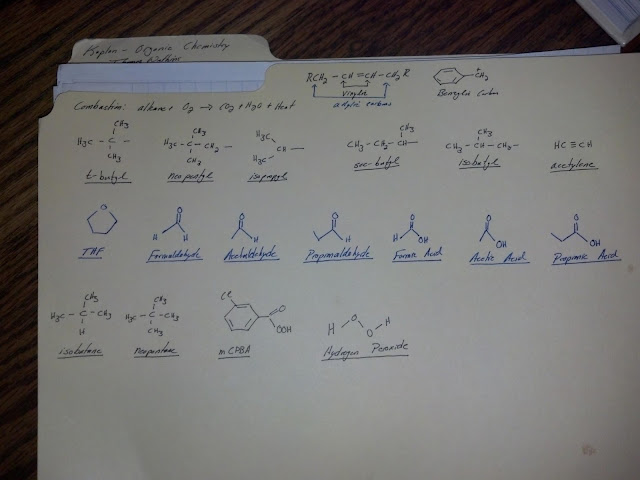 Kaplan - Organic Chemistry
RCH₂ - CH = CH - CH₂R
vinylic
allylic carbons
⁺CH₂
Benzylic Carbon
Combustion: alkane + O₂ → CO₂ + H₂O + Heat
CH₃
H₃C - C -
CH₃
t-butyl
CH₃
H₃C - C - CH₂ -
CH₃
neopentyl
H₃C
CH -
H₃C
isopropyl
CH₃
CH₃ - CH₂ - CH -
sec-butyl
CH₃
CH₃ - CH - CH₂ -
isobutyl
HC ≡ CH
acetylene
O
THF
O
H H
Formaldehyde
O
H
Acetaldehyde
O
H
Propionaldehyde
O
H OH
Formic Acid
O
OH
Acetic Acid
O
OH
Propionic Acid
CH₃
H₃C - C - CH₃
H
isobutane
CH₃
H₃C - C - CH₃
CH₃
neopentane
Cl
O
OOH
mCPBA
H O O H
Hydrogen Peroxide